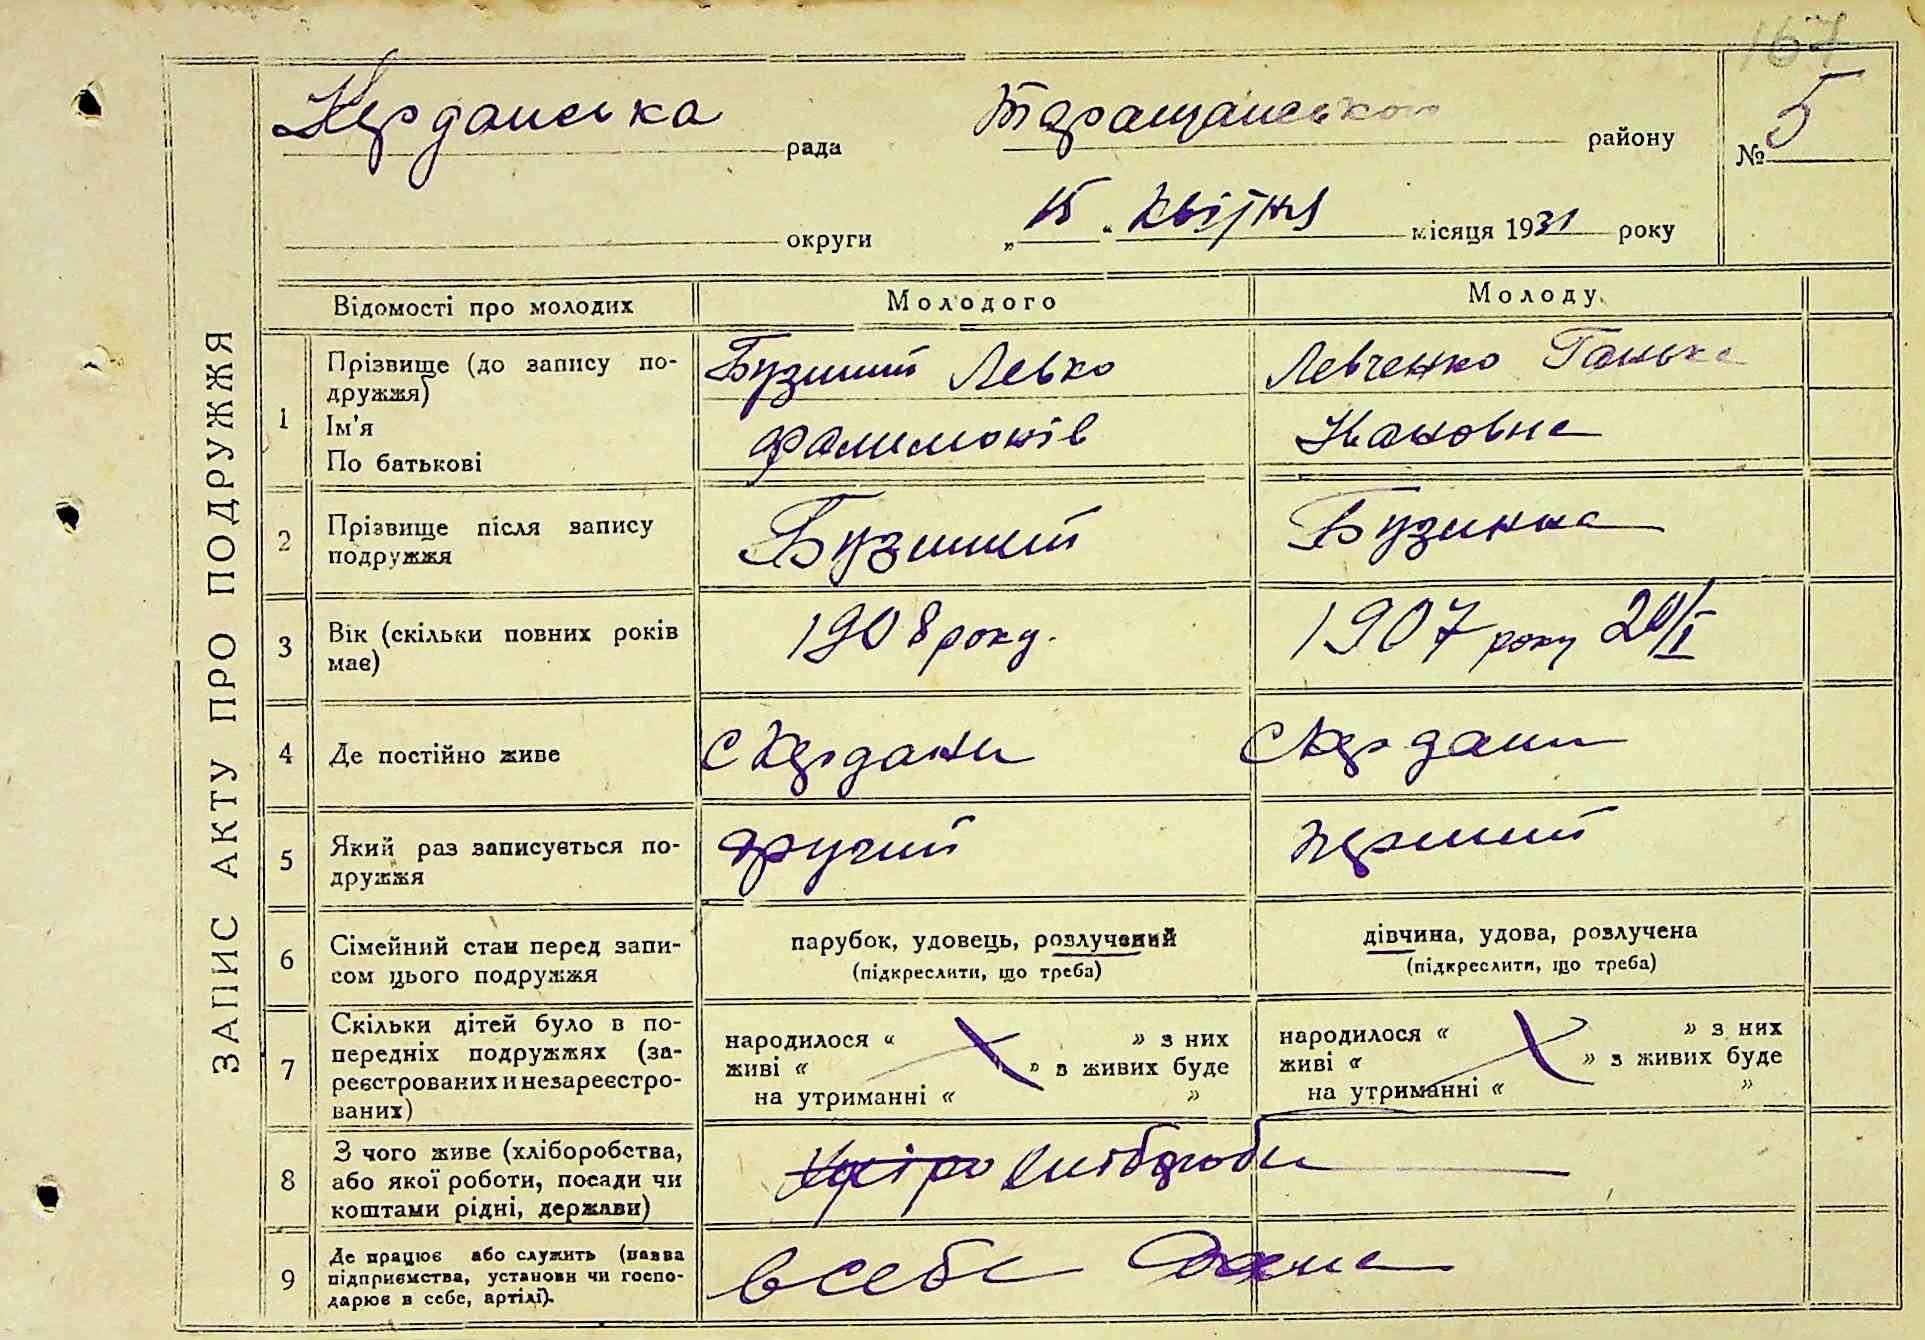 167
Кердансьска рада Таращанського району № 5
округи „15“ квітня місяця 1931 року
ЗАПИС АКТУ ПРО ПОДРУЖЖЯ
Відомості про молодих Молодого Молоду
1 Прізвище (до запису по-
дружжя)
Ім'я
По батькові
Бузиний Левко
Филимонів
Левченко Ганька
Ивановна
2 Прізвище після запису
подружжя
Бузиний
Бузинна
3 Вік (скільки повних років
має)
1908 року.
1907 року 20/I
4 Де постійно живе
с Кердани
с Кердани
5 Який раз записується по-
дружжя
другий
перший
6 Сімейний стан перед запи-
сом цього подружжя
парубок, удовець, розлучений
(підкреслити, що треба)
дівчина, удова, розлучена
(підкреслити, що треба)
7 Скільки дітей було в по-
передніх подружжях (за-
реєстрованих и незареєстро-
ваних)
народилося « » з них
живі « » в живих буде
на утриманні « »
народилося « » з них
живі « » з живих буде
на утриманні « »
8 З чого живе (хліборобства,
або якої роботи, посади чи
коштами рідні, держави)
9 Де працює або служить (назва
підприємства, установи чи госпо-
дарює в себе, артілі).
в себе дома